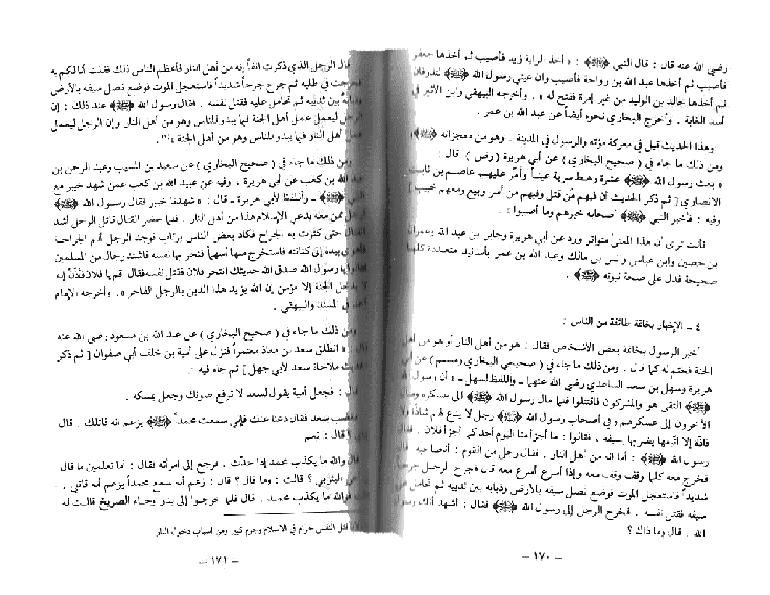 رضي الله عنه قال : قال النبي ﷺ : « أخذ الراية زيد فأصيب ثم أخذها جعفر
فأصيب ثم أخذها عبد الله بن رواحة فأصيب وإن عيني رسول الله ﷺ لتذرفان
ثم أخذها خالد بن الوليد من غير إمرة ففتح له » . وأخرجه البيهقي وابن الأثير في
أسد الغابة . وأخرج البخاري نحوه أيضاً عن عبد الله بن عمر .
وهذا الحديث قيل في معركة مؤته والرسول في المدينة . وهو من معجزاته ﷺ
ومن ذلك ما جاء في ( صحيح البخاري ) عن أبي هريرة ( رض ) قال :
« بعث رسول الله ﷺ عشرة رهط سرية عيناً وأمّر عليهم عاصم بن ثابت
الانصاري [ ثم ذكر الحديث أن فيهم مَن قتل وفيهم من أسر وبيع ومعهم خبيب ]
وفيه : فأخبر النبي ﷺ أصحابه خبرهم وما أصيبوا » .
فأنت ترى أن هذا المعنى متواتر ورد عن أبي هريرة وجابر بن عبد الله وعمران
بن حصين وابن عباس وأنس بن مالك وعبد الله بن عمر بأسانيد متعددة كلها
صحيحة فدل على صحة نبوته ﷺ .
٤ - الإخبار بخاتمة طائفة من الناس :
أخبر الرسول بخاتمة بعض الأشخاص فقال : هو من أهل النار أو هو من أهل
الجنة فختم له كما قال . ومن ذلك ما جاء في ( صحيحي البخاري ومسلم ) عن أبي
هريرة وسهل بن سعد الساعدي رضي الله عنهما - واللفظ لسهل - « أن رسول الله
ﷺ التقى هو والمشركون فاقتتلوا فلما مال رسول الله ﷺ الى عسكره ومال
الآخرون إلى عسكرهم ، وفي أصحاب رسول الله ﷺ رجل لا يدع لهم شاذة ولا
فاذة إلا اتبعها يضربها بسيفه ، فقالوا : ما أجزأ منا اليوم أحد كما أجزأ فلان . فقال
رسول الله ﷺ : أما انه من أهل النار . فقال رجل من القوم : أنا صاحبه قال
فخرج معه كلما وقف وقف معه وإذا أسرع أسرع معه قال فجرح الرجل جرحاً
شديداً فاستعجل الموت فوضع نصل سيفه بالأرض وذبابه بين ثدييه ثم تحامل على
سيفه فقتل نفسه . فخرج الرجل إلى رسول الله ﷺ فقال : أشهد أنك رسول
الله . قال وما ذاك ؟
- ١٧٠ -
قال الرجل الذي ذكرت آنفاً إنه من أهل النار فأعظم الناس ذلك فقلت أنا لكم به
فخرجت في طلبه ثم جرح جرحاً شديداً فاستعجل الموت فوضع نصل سيفه بالأرض
وذبابه بين ثدييه ثم تحامل عليه فقتل نفسه . فقال رسول الله ﷺ عند ذلك : إن
الرجل ليعمل عمل أهل الجنة فيما يبدو للناس وهو من أهل النار وإن الرجل ليعمل
عمل أهل النار فيما يبدو للناس وهو من أهل الجنة »
ومن ذلك ما جاء في ( صحيح البخاري ) عن سعيد بن المسيب وعبد الرحمن بن
عبد الله بن كعب عن أبي هريرة . وفيه عن عبيد الله بن كعب عمن شهد خيبر مع
النبي ﷺ - واللفظ لأبي هريرة - قال : « شهدنا خيبر فقال رسول الله ﷺ
لرجل ممن معه يدعي الإسلام هذا من أهل النار . فلما حضر القتال قاتل الرجل أشد
القتال حتى كثرت به الجراح فكاد بعض الناس يرتاب فوجد الرجل ألم الجراحة
فأهوى بيده إلى كنانته فاستخرج منها أسهماً فنحر بها نفسه فاشتد رجال من المسلمين
فقالوا يا رسول الله صدق الله حديثك انتحر فلان فقتل نفسه فقال قم يا فلان فأذن إنه
لا يدخل الجنة إلا مؤمن إن الله يؤيد هذا الدين بالرجل الفاجر » . وأخرجه الإمام
أحمد في المسند والبيهقي .
ومن ذلك ما جاء في ( صحيح البخاري ) عن عبد الله بن مسعود رضي الله عنه
قال : « انطلق سعد بن معاذ معتمراً فنزل على أمية بن خلف أبي صفوان [ ثم ذكر
حديث ملاحاة سعد لأبي جهل ] ثم جاء فيه :
قال : فجعل أمية يقول لسعد لا ترفع صوتك وجعل يمسكه .
فغضب سعد فقال دعنا عنك فإني سمعت محمداً ﷺ يزعم انه قاتلك . قال
إياي ؟ قال : نعم
قال والله ما يكذب محمد إذا حدّث . فرجع إلى امرأته فقال : أما تعلمين ما قال
أخي اليثربي ؟ قالت : وما قال ؟ قال : زعم أنه سمع محمداً يزعم أنه قاتلي .
قالت فوالله ما يكذب محمد . قال فلما خرجوا إلى بدر وجاء الصريخ قالت له
قتل النفس حرام في الاسلام وجرم كبير ومن اسباب دخول النار
- ١٧١ -